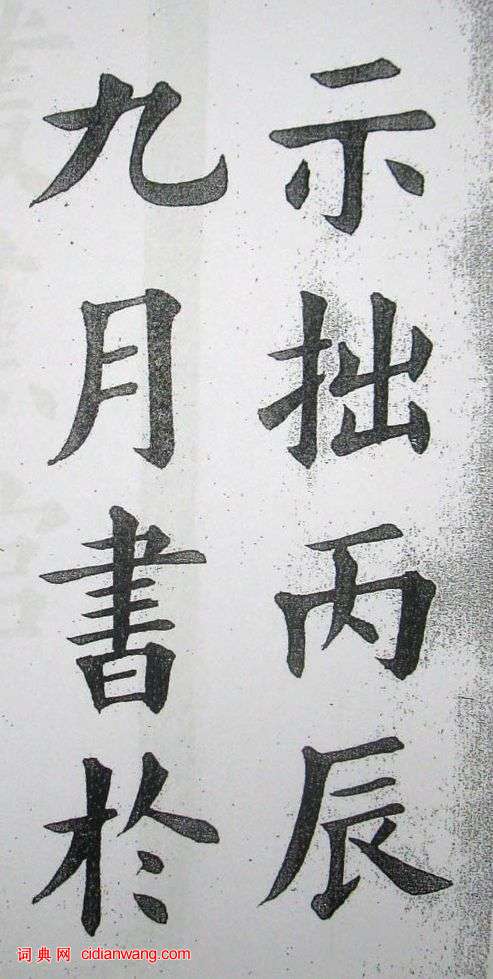 示拙丙辰
九月書於
词典网 cidianwang.com